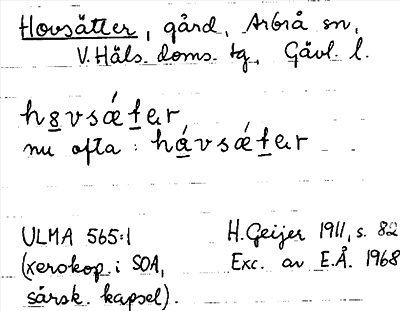 Hovsätter, gård, Arbrå sn,
V. Häls. doms. tg, Gävl. l.
hovsǽter
nu ofta: hávsǽter
ULMA 565:1
(xerokop. i SOA,
särsk. kapsel).
H. Geijer 1911, s. 82
Exc. av E.Å. 1968